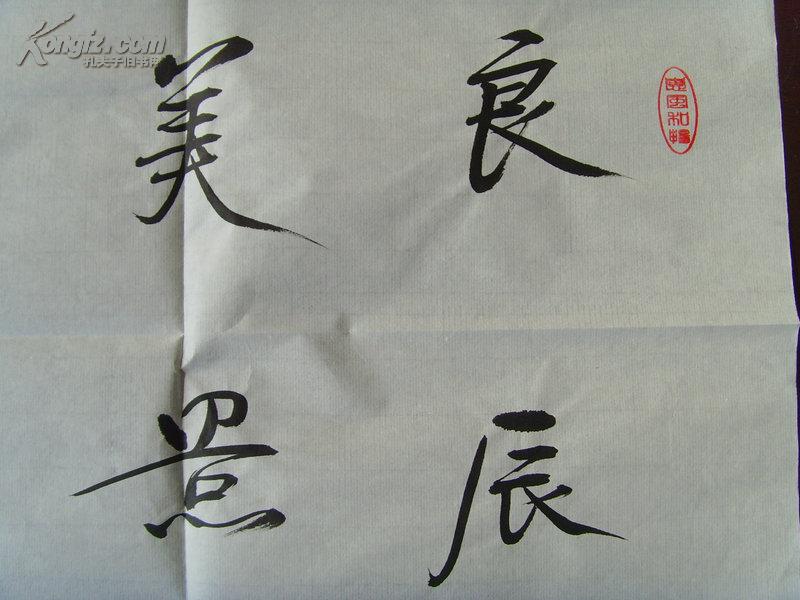 良辰
美景
Kongfz.com
孔夫子旧书网